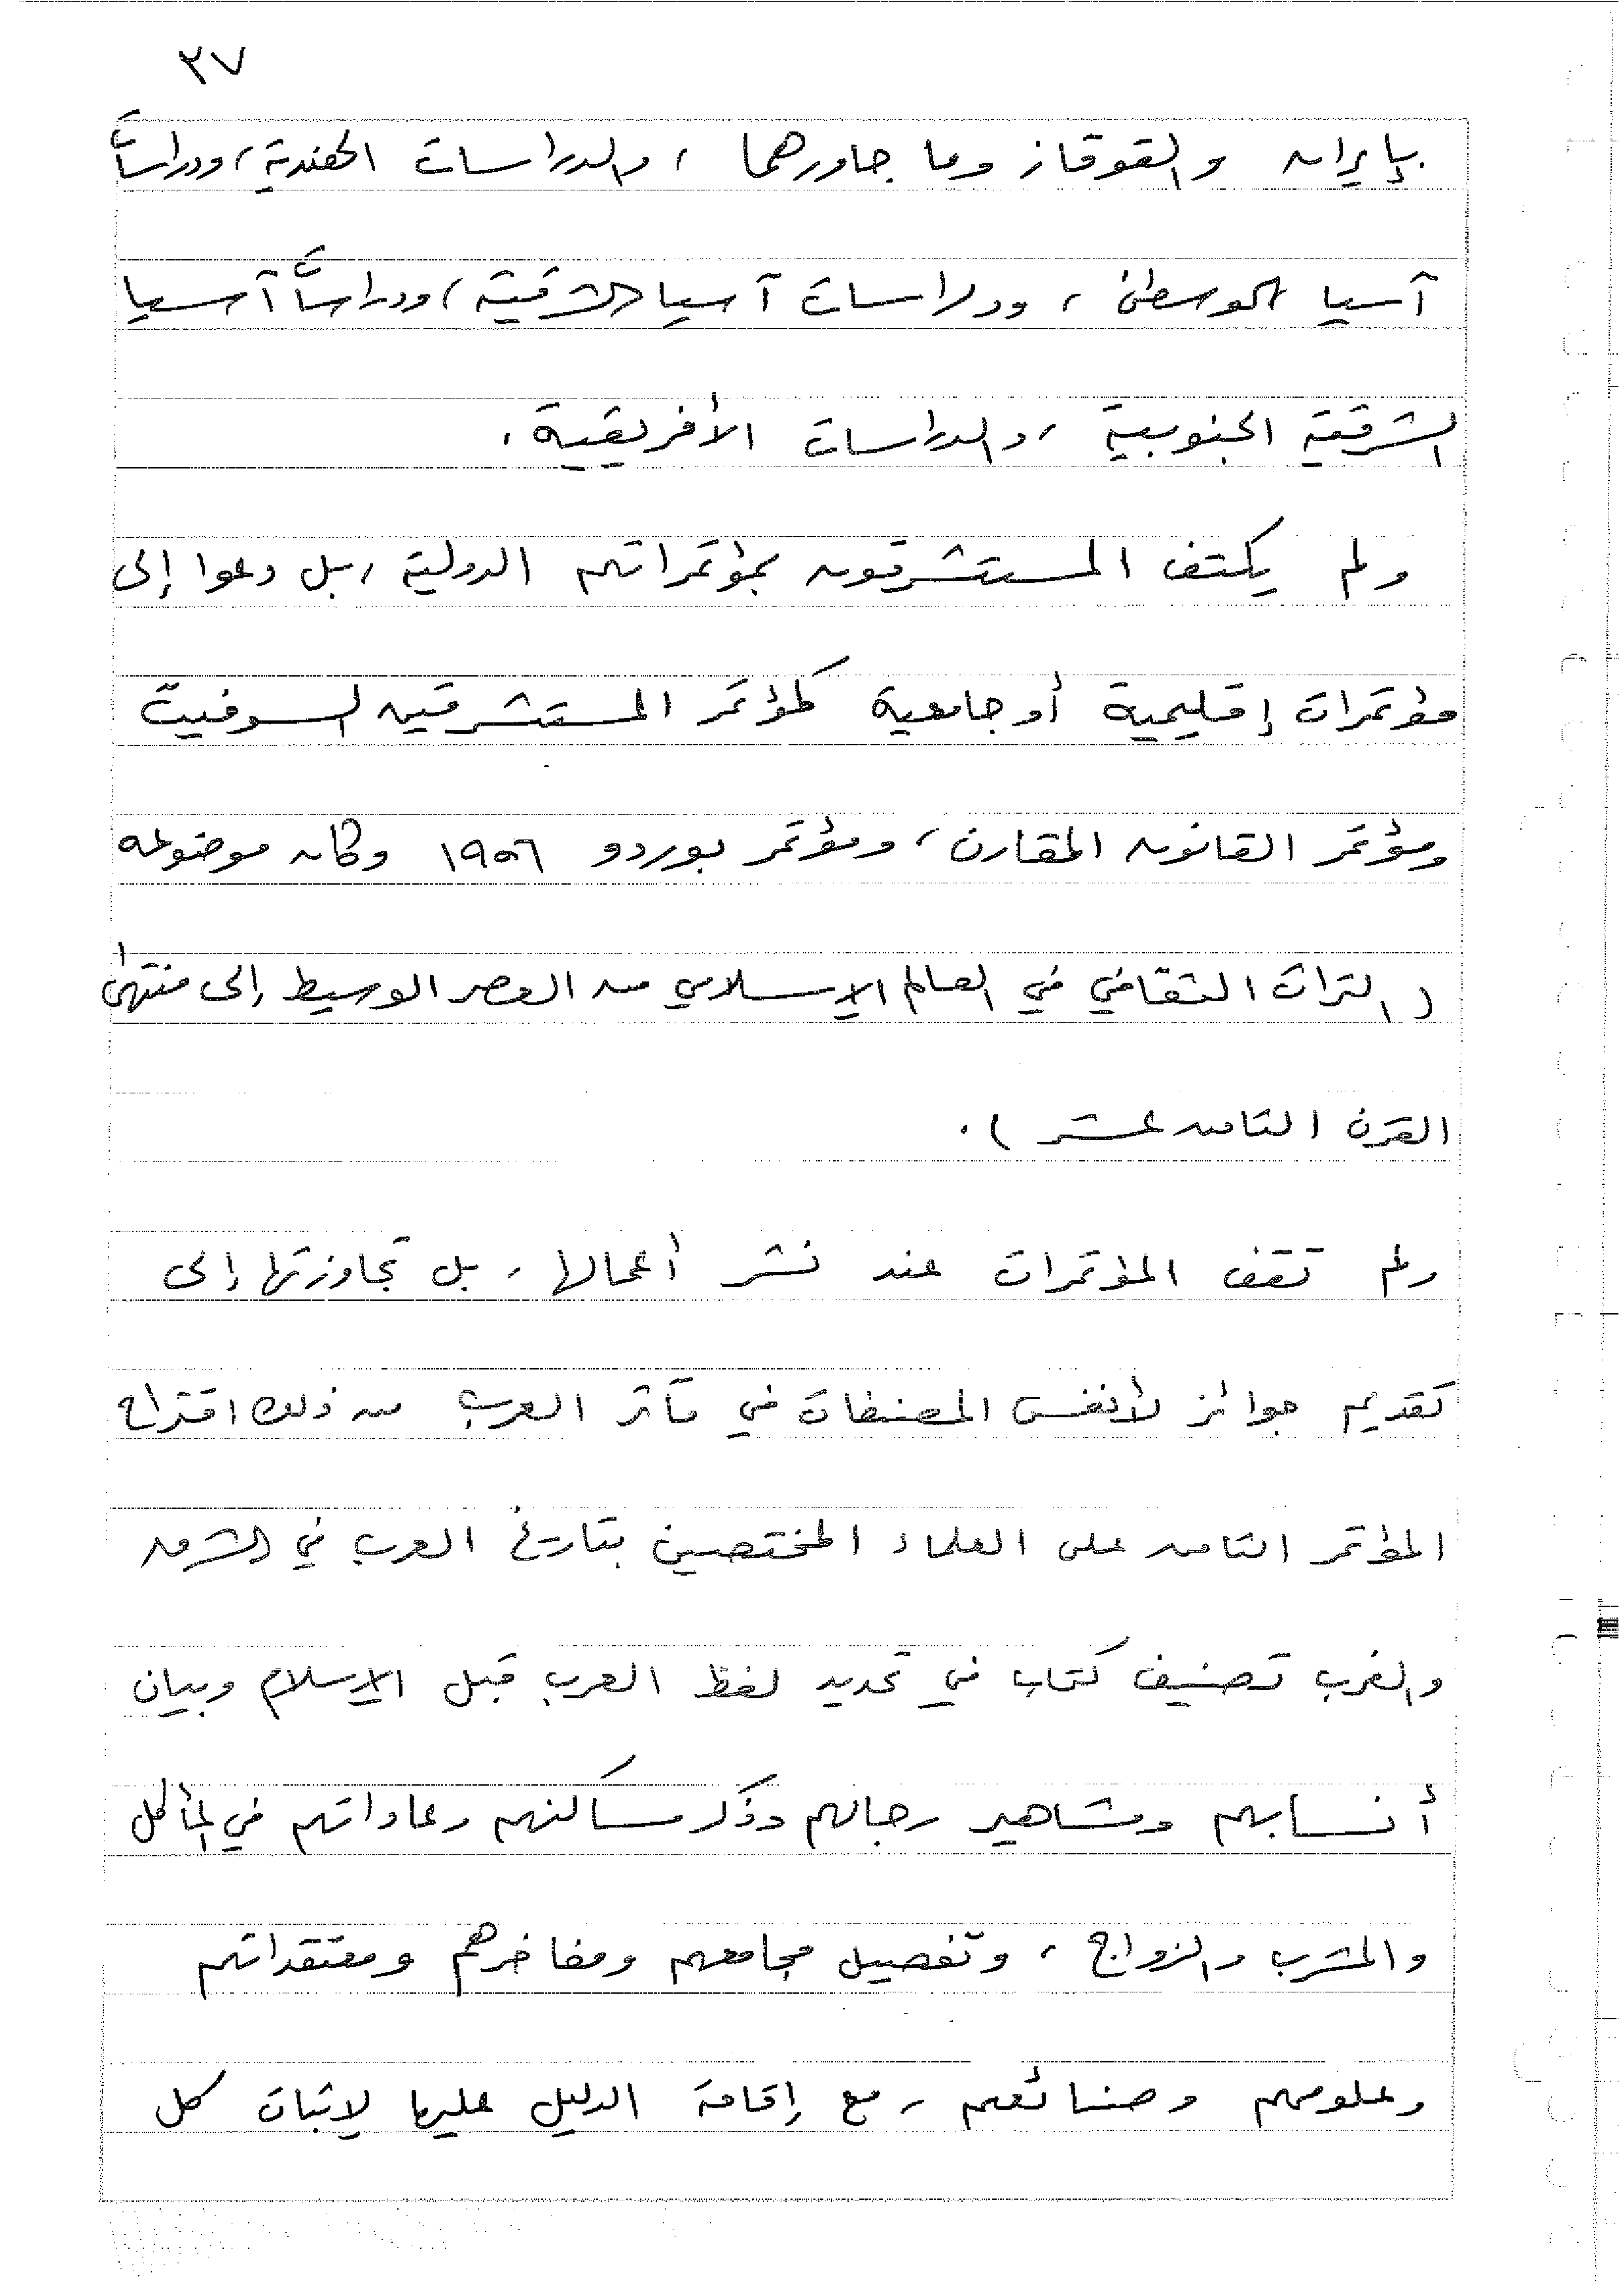 ٢٧
بإيران والقوقاز وما جاورهما ، والدراسات الهندية ، ودراسات
آسيا الوسطى ، ودراسات آسيا الشرقية ، ودراسات آسيا
الشرقية الجنوبية ، والدراسات الأفريقية .
ولم يكتف المستشرقون بمؤتمراتهم الدولية ، بل دعوا إلى
مؤتمرات إقليمية أو جامعية كمؤتمر المستشرقين السوفيت
ومؤتمر القانون المقارن ، ومؤتمر بوردو ١٩٥٦ وكان موضوعه
( التراث الثقافي في العالم الإسلامي من العصر الوسيط إلى منتهى
القرن الثامن عشر ) .
ولم تقف المؤتمرات عند نشر أعمالها ، بل تجاوزتها إلى
تقديم جوائز لأنفس المصنفات في مآثر العرب من ذلك اقتراح
المؤتمر الثامن على العلماء المختصين بتاريخ العرب في الشرق
والغرب تصنيف كتاب في تحديد لفظ العرب قبل الإسلام وبيان
أنسابهم ومشاهير رجالهم وذكر مساكنهم وعاداتهم في المأكل
والمشرب والزواج ، وتفصيل مجامعهم ومفاخرهم ومعتقداتهم
وعلومهم وصنائعهم ، مع إقامة الدليل عليها لإثبات كل